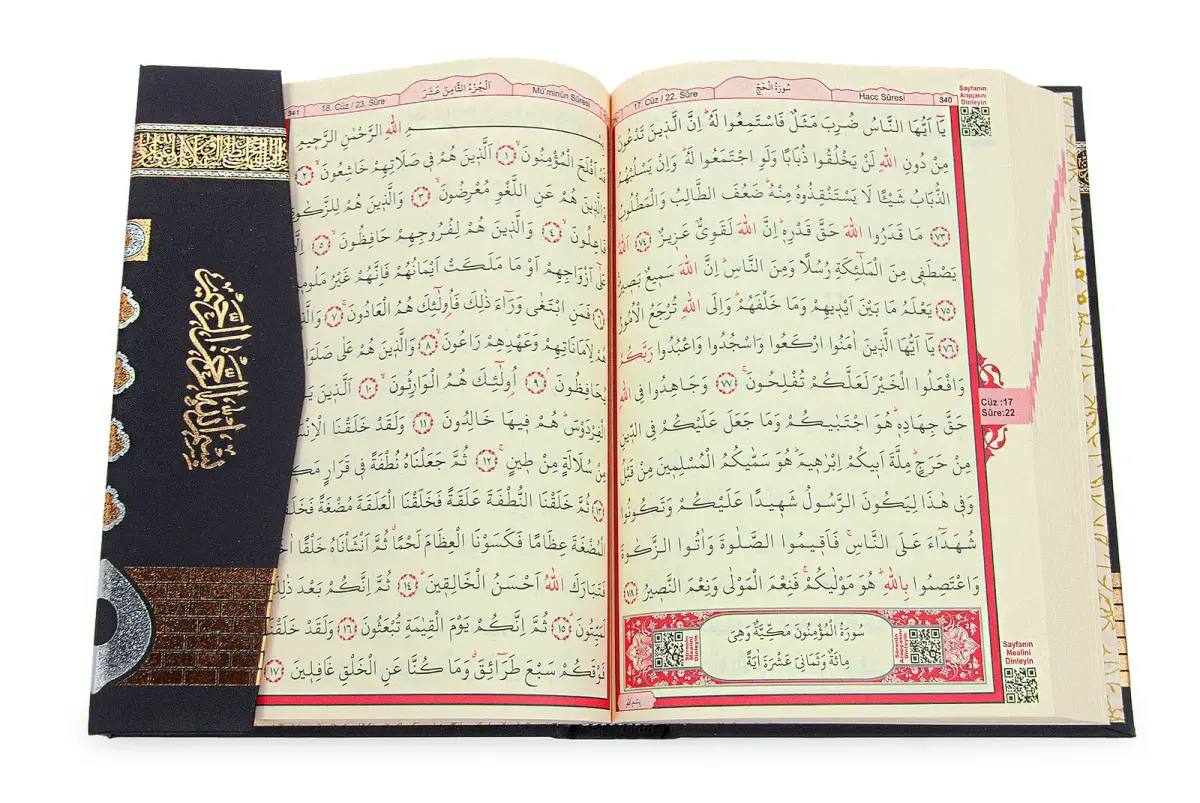 17. Cüz / 22. Sûre
سُورَةُ الْحَجِّ
Hacc Sûresi
340
Sayfanın
Arapçasını
Dinleyin
يَٓا اَيُّهَا النَّاسُ ضُرِبَ مَثَلٌ فَاسْتَمِعُوا لَهُۜ اِنَّ الَّذ۪ينَ تَدْعُونَ
مِنْ دُونِ اللّٰهِ لَنْ يَخْلُقُوا ذُبَابًا وَلَوِ اجْتَمَعُوا لَهُۜ وَاِنْ يَسْلُبْهُمُ
الذُّبَابُ شَيْـًٔا لَا يَسْتَنْقِذُوهُ مِنْهُۜ ضَعُفَ الطَّالِبُ وَالْمَطْلُوبُ
﴿٧٣﴾ مَا قَدَرُوا اللّٰهَ حَقَّ قَدْرِه۪ۜ اِنَّ اللّٰهَ لَقَوِيٌّ عَز۪يزٌ ﴿٧٤﴾ اَللّٰهُ
يَصْطَف۪ي مِنَ الْمَلٰٓئِكَةِ رُسُلًا وَمِنَ النَّاسِۜ اِنَّ اللّٰهَ سَم۪يعٌ بَص۪يرٌ
﴿٧٥﴾ يَعْلَمُ مَا بَيْنَ اَيْد۪يهِمْ وَمَا خَلْفَهُمْۜ وَاِلَى اللّٰهِ تُرْجَعُ الْاُمُورُ
﴿٧٦﴾ يَٓا اَيُّهَا الَّذ۪ينَ اٰمَنُوا ارْكَعُوا وَاسْجُدُوا وَاعْبُدُوا رَبَّكُمْ
وَافْعَلُوا الْخَيْرَ لَعَلَّكُمْ تُفْلِحُونَ ﴿٧٧﴾ وَجَاهِدُوا فِي اللّٰهِ
حَقَّ جِهَادِه۪ۜ هُوَ اجْتَبٰيكُمْ وَمَا جَعَلَ عَلَيْكُمْ فِي الدّ۪ينِ
مِنْ حَرَجٍۜ مِلَّةَ اَب۪يكُمْ اِبْرٰه۪يمَۜ هُوَ سَمّٰيكُمُ الْمُسْلِم۪ينَ مِنْ قَبْلُ
وَف۪ي هٰذَا لِيَكُونَ الرَّسُولُ شَه۪يدًا عَلَيْكُمْ وَتَكُونُوا
شُهَدَٓاءَ عَلَى النَّاسِۚ فَاَق۪يمُوا الصَّلٰوةَ وَاٰتُوا الزَّكٰوةَ
وَاعْتَصِمُوا بِاللّٰهِۜ هُوَ مَوْلٰيكُمْۚ فَنِعْمَ الْمَوْلٰى وَنِعْمَ النَّص۪يرُ ﴿٧٨﴾
سُورَةُ الْمُؤْمِنُونَ مَكِّيَّةٌ وَهِيَ
مِائَةٌ وَثَمَانِيَ عَشْرَةَ اٰيَةً
Cüz :17
Sûre:22
Sayfanın
Mealini
Dinleyin
341
18. Cüz / 23. Sûre
اَلْجُزْءُ الثَّامِنَ عَشَرَ
Mü'minûn Sûresi
اللّٰهِ الرَّحْمٰنِ الرَّح۪يمِ
قَدْ اَفْلَحَ الْمُؤْمِنُونَۙ ﴿١﴾ اَلَّذ۪ينَ هُمْ ف۪ي صَلَاتِهِمْ خَاشِعُونَۙ ﴿٢﴾
وَالَّذ۪ينَ هُمْ عَنِ اللَّغْوِ مُعْرِضُونَۙ ﴿٣﴾ وَالَّذ۪ينَ هُمْ لِلزَّكٰوةِ
فَاعِلُونَۙ ﴿٤﴾ وَالَّذ۪ينَ هُمْ لِفُرُوجِهِمْ حَافِظُونَۙ ﴿٥﴾
عَلٰٓى اَزْوَاجِهِمْ اَوْ مَا مَلَكَتْ اَيْمَانُهُمْ فَاِنَّهُمْ غَيْرُ
﴿٦﴾ فَمَنِ ابْتَغٰى وَرَٓاءَ ذٰلِكَ فَاُو۬لٰٓئِكَ هُمُ الْعَادُونَۚ ﴿٧﴾
هُمْ لِاَمَانَاتِهِمْ وَعَهْدِهِمْ رَاعُونَۙ ﴿٨﴾ وَالَّذ۪ينَ هُمْ عَلٰى
يُحَافِظُونَۢ ﴿٩﴾ اُو۬لٰٓئِكَ هُمُ الْوَارِثُونَۙ ﴿١٠﴾ اَلَّذ۪ينَ
الْفِرْدَوْسَۜ هُمْ ف۪يهَا خَالِدُونَ ﴿١١﴾ وَلَقَدْ خَلَقْنَا
مِنْ سُلَالَةٍ مِنْ ط۪ينٍۚ ﴿١٢﴾ ثُمَّ جَعَلْنَاهُ نُطْفَةً ف۪ي قَرَارٍ
﴿١٣﴾ ثُمَّ خَلَقْنَا النُّطْفَةَ عَلَقَةً فَخَلَقْنَا الْعَلَقَةَ مُضْغَةً
الْمُضْغَةَ عِظَامًا فَكَسَوْنَا الْعِظَامَ لَحْمًاۗ ثُمَّ اَنْشَأْنَاهُ خَلْقًا
فَتَبَارَكَ اللّٰهُ اَحْسَنُ الْخَالِق۪ينَۜ ﴿١٤﴾ ثُمَّ اِنَّكُمْ بَعْدَ
لَمَيِّتُونَۜ ﴿١٥﴾ ثُمَّ اِنَّكُمْ يَوْمَ الْقِيٰمَةِ تُبْعَثُونَ ﴿١٦﴾ وَلَقَدْ خَلَقْنَا
فَوْقَكُمْ سَبْعَ طَرَٓائِقَۗ وَمَا كُنَّا عَنِ الْخَلْقِ غَافِل۪ينَ ﴿١٧﴾